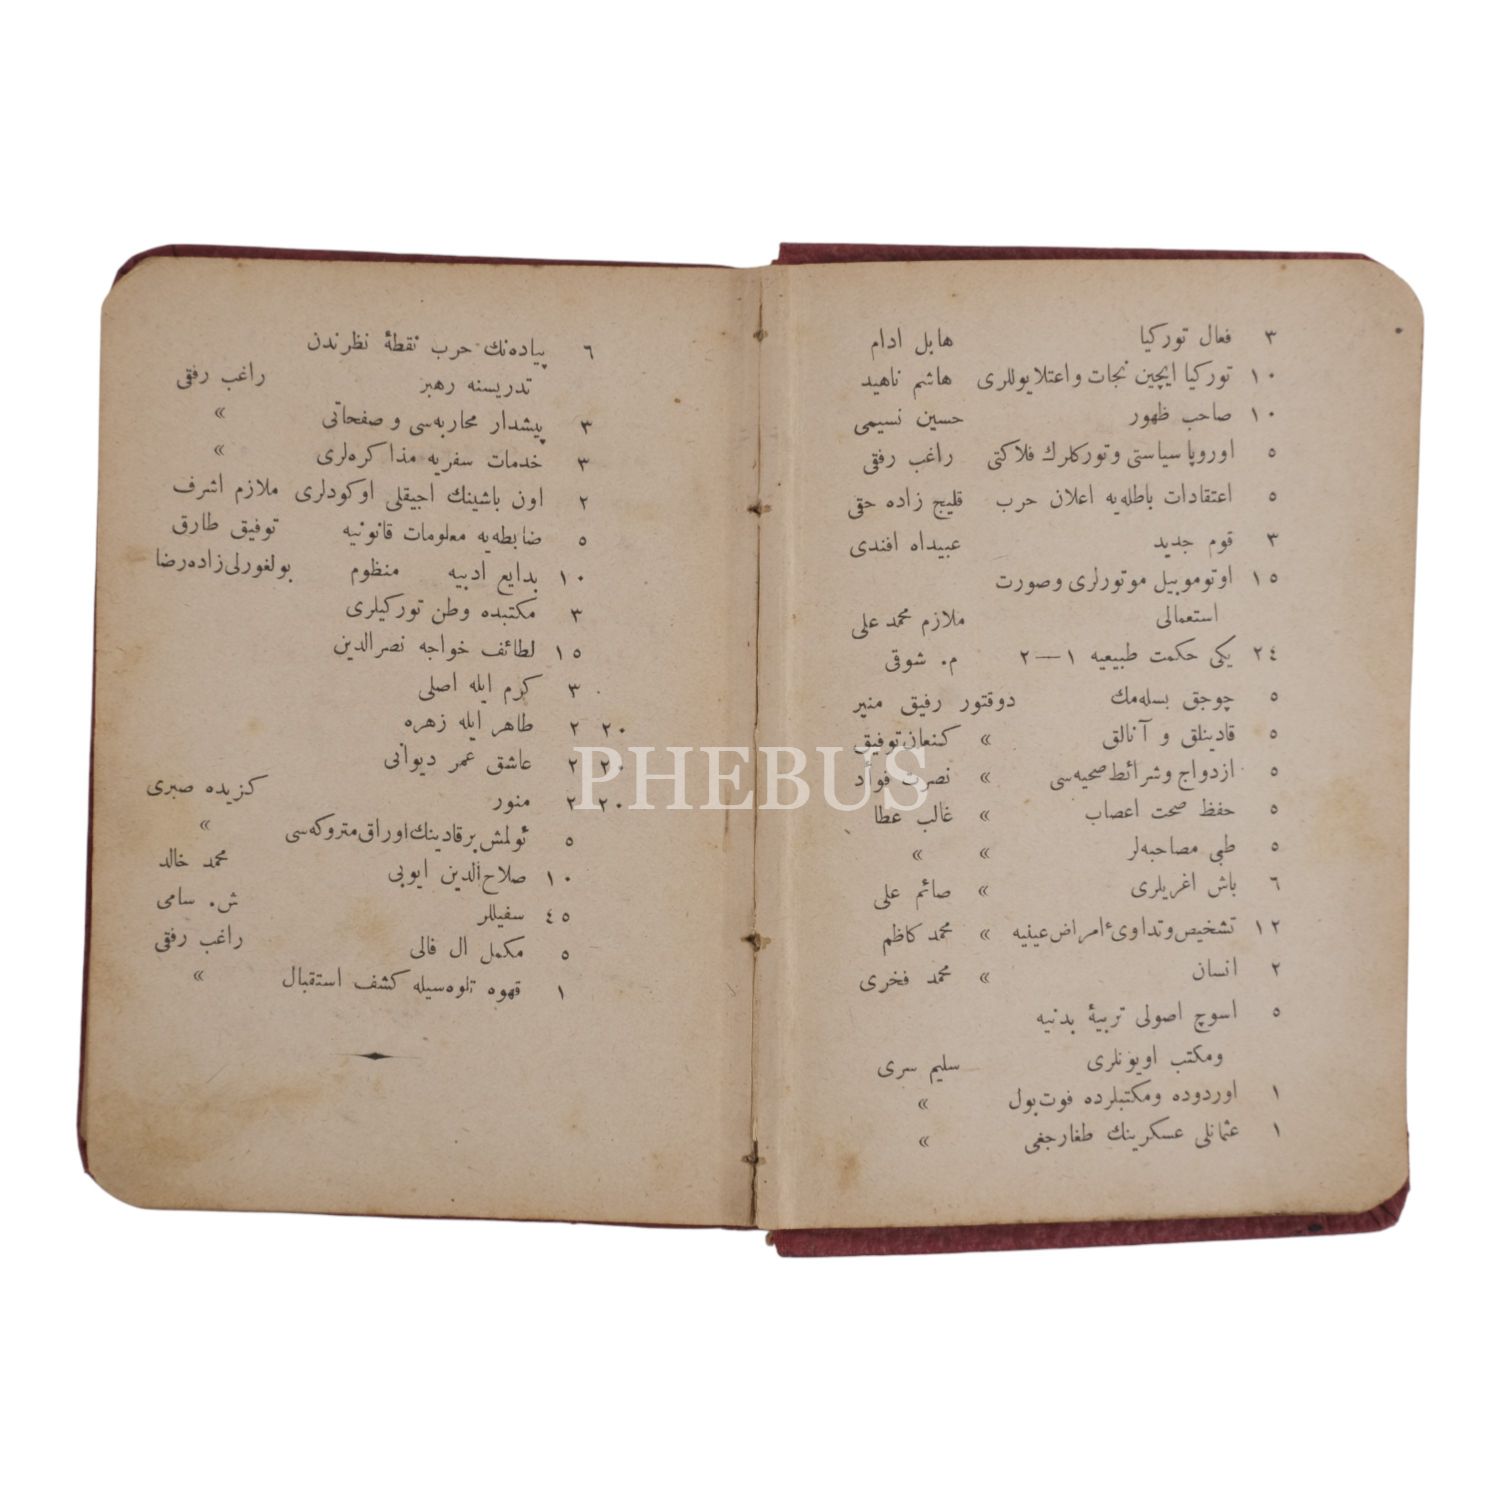 ٣ فعال توركيا هابل ادام
١٠ توركيا ايچين نجات واعتلا يوللری هاشم ناهيد
١٠ صاحب ظهور حسين نسيمی
٥ اوروپا سياستی وتوركلرك فلاكتی راغب رفقی
٥ اعتقادات باطله‌يه اعلان حرب قليج زاده حقی
٣ قوم جديد عبيداه افندی
١٥ اوتوموبيل موتورلری وصورت
استعمالی ملازم محمد علی
٢٤ يكی حكمت طبيعيه ١—٢ م. شوقی
٥ چوجق بسله‌مك دوقتور رفيق منير
٥ قادينلق و آنالق » كنعان توفيق
٥ ازدواج وشرائط صحيه‌سی » نصرت فوأد
٥ حفظ صحت اعصاب » غالب عطا
٥ طبی مصاحبه‌لر » »
٦ باش اغريلری » صائم علی
١٢ تشخيص وتداوئ امراض عينيه » محمد كاظم
٢ انسان » محمد فخری
٥ اسوچ اصولی تربيۀ بدنيه
ومكتب اويونلری سليم سری
١ اوردوده ومكتبلرده فوت‌بول »
١ عثمانلی عسكرينك طغارجغی »
٦ پياده‌نك حرب نقطۀ نظرندن
تدريسنه رهبر راغب رفقی
٣ پيشدار محاربه‌سی و صفحاتی »
٣ خدمات سفريه مذاكره‌لری »
٢ اون باشينك اجيقلی اوكودلری ملازم اشرف
٥ ضابطه‌يه معلومات قانونيه توفيق طارق
١٠ بدايع ادبيه منظوم بولغورلی‌زاده رضا
٣ مكتبده وطن توركيلری
١٥ لطائف خواجه نصرالدين
٣ كرم ايله اصلی
٢٠ ٢ طاهر ايله زهره
٢٠ ٢ عاشق عمر ديوانی
٢٠ ٢ منور كزيده صبری
٥ ئولمش برقادينك اوراق متروكه‌سی »
١٠ صلاح‌الدين ايوبی محمد خالد
٤٥ سفيللر ش. سامی
٥ مكمل ال فالی راغب رفقی
١ قهوه تلوه‌سيله كشف استقبال »
PHEBUS